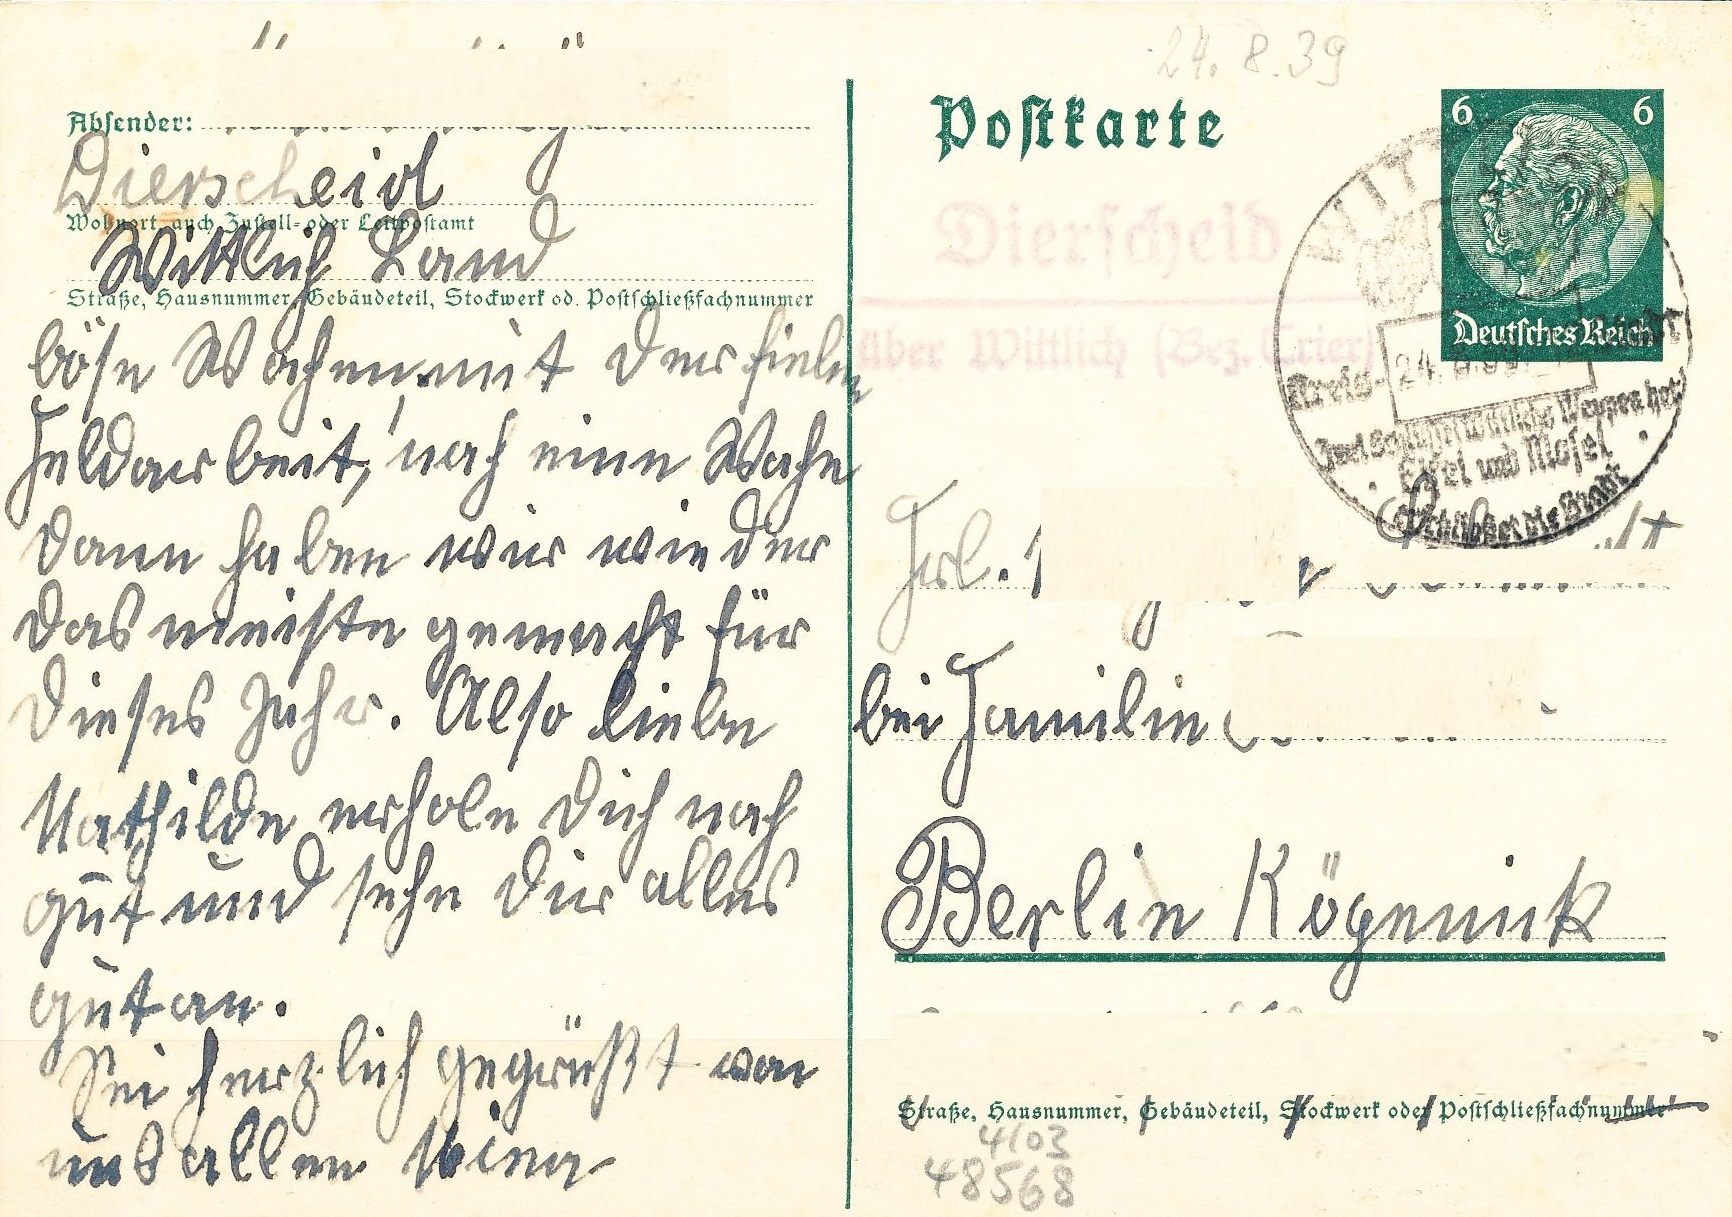 Absender:
Dierscheid
Wohnort, auch Zustell- oder Leitpostamt
Wittlich Land
Straße, Hausnummer, Gebäudeteil, Stockwerk od. Postschließfachnummer
böse Wochen mit der fielen
Feldarbeit, noch eine Woche
dann haben wir wieder
das meiste gemacht für
dieses Jahr. Also liebe
Mathilde erhole dich noch
gut und sehe dir alles
gut an.
Sei herzlich gegrüßt von
uns allen
24. 8. 39
Postkarte
6 6
Deutsches Reich
Dierscheid
über Wittlich (Bez. Trier)
Kreis-
24. 8.39
Eifel und Mosel
Frl.
bei Familie
Berlin Köpenick
Straße, Hausnummer, Gebäudeteil, Stockwerk oder Postschließfachnummer
4103
48568